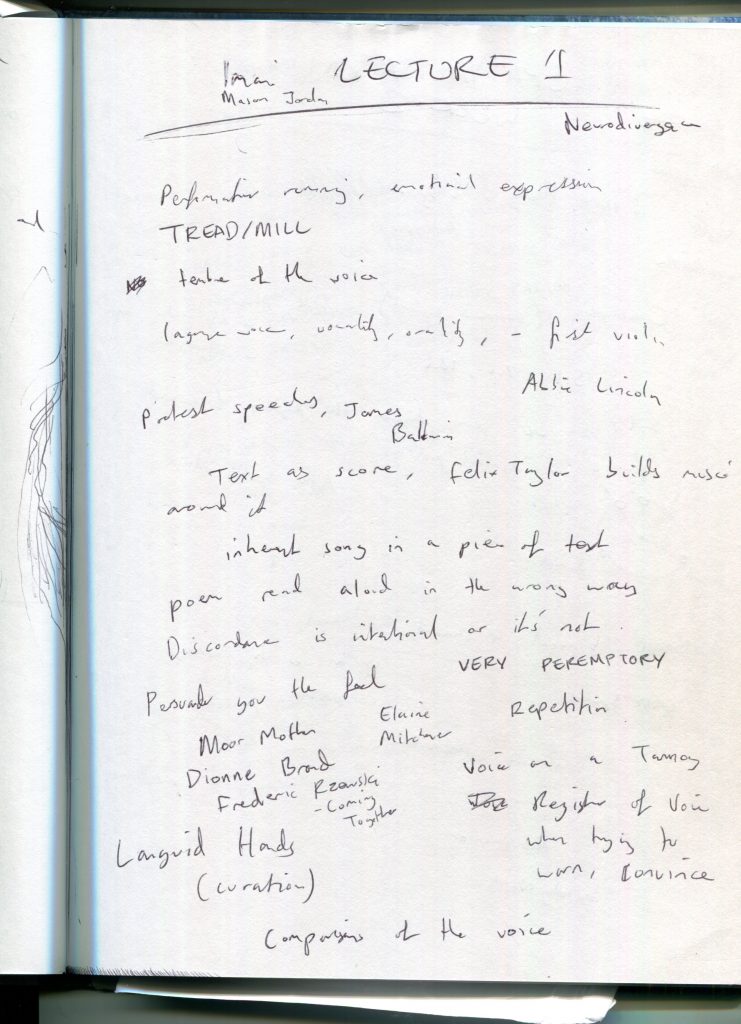 Imani LECTURE 1
Mason Jordan
Neurodivergen
Performative running, emotional expression
TREAD/MILL
tembre of the voice
language voice, vocality, orality, - first violin
Abbie Lincoln
Protest speeches, James
Baldwin
Text as score, Felix Taylor builds music
around it
inherent song in a piece of text
poem read aloud in the wrong way
Discordance is intentional or it's not.
VERY PEREMPTORY
Persuade you the
Repetition
Moor Mother
Elaine
Mitchener
Dionne Brand
Voice on a Tannoy
Frederic Rzewski
- Coming
Together
Register of Voice
when trying to
warn, convince
Languid Hands
(curation)
Comparisons of the voice